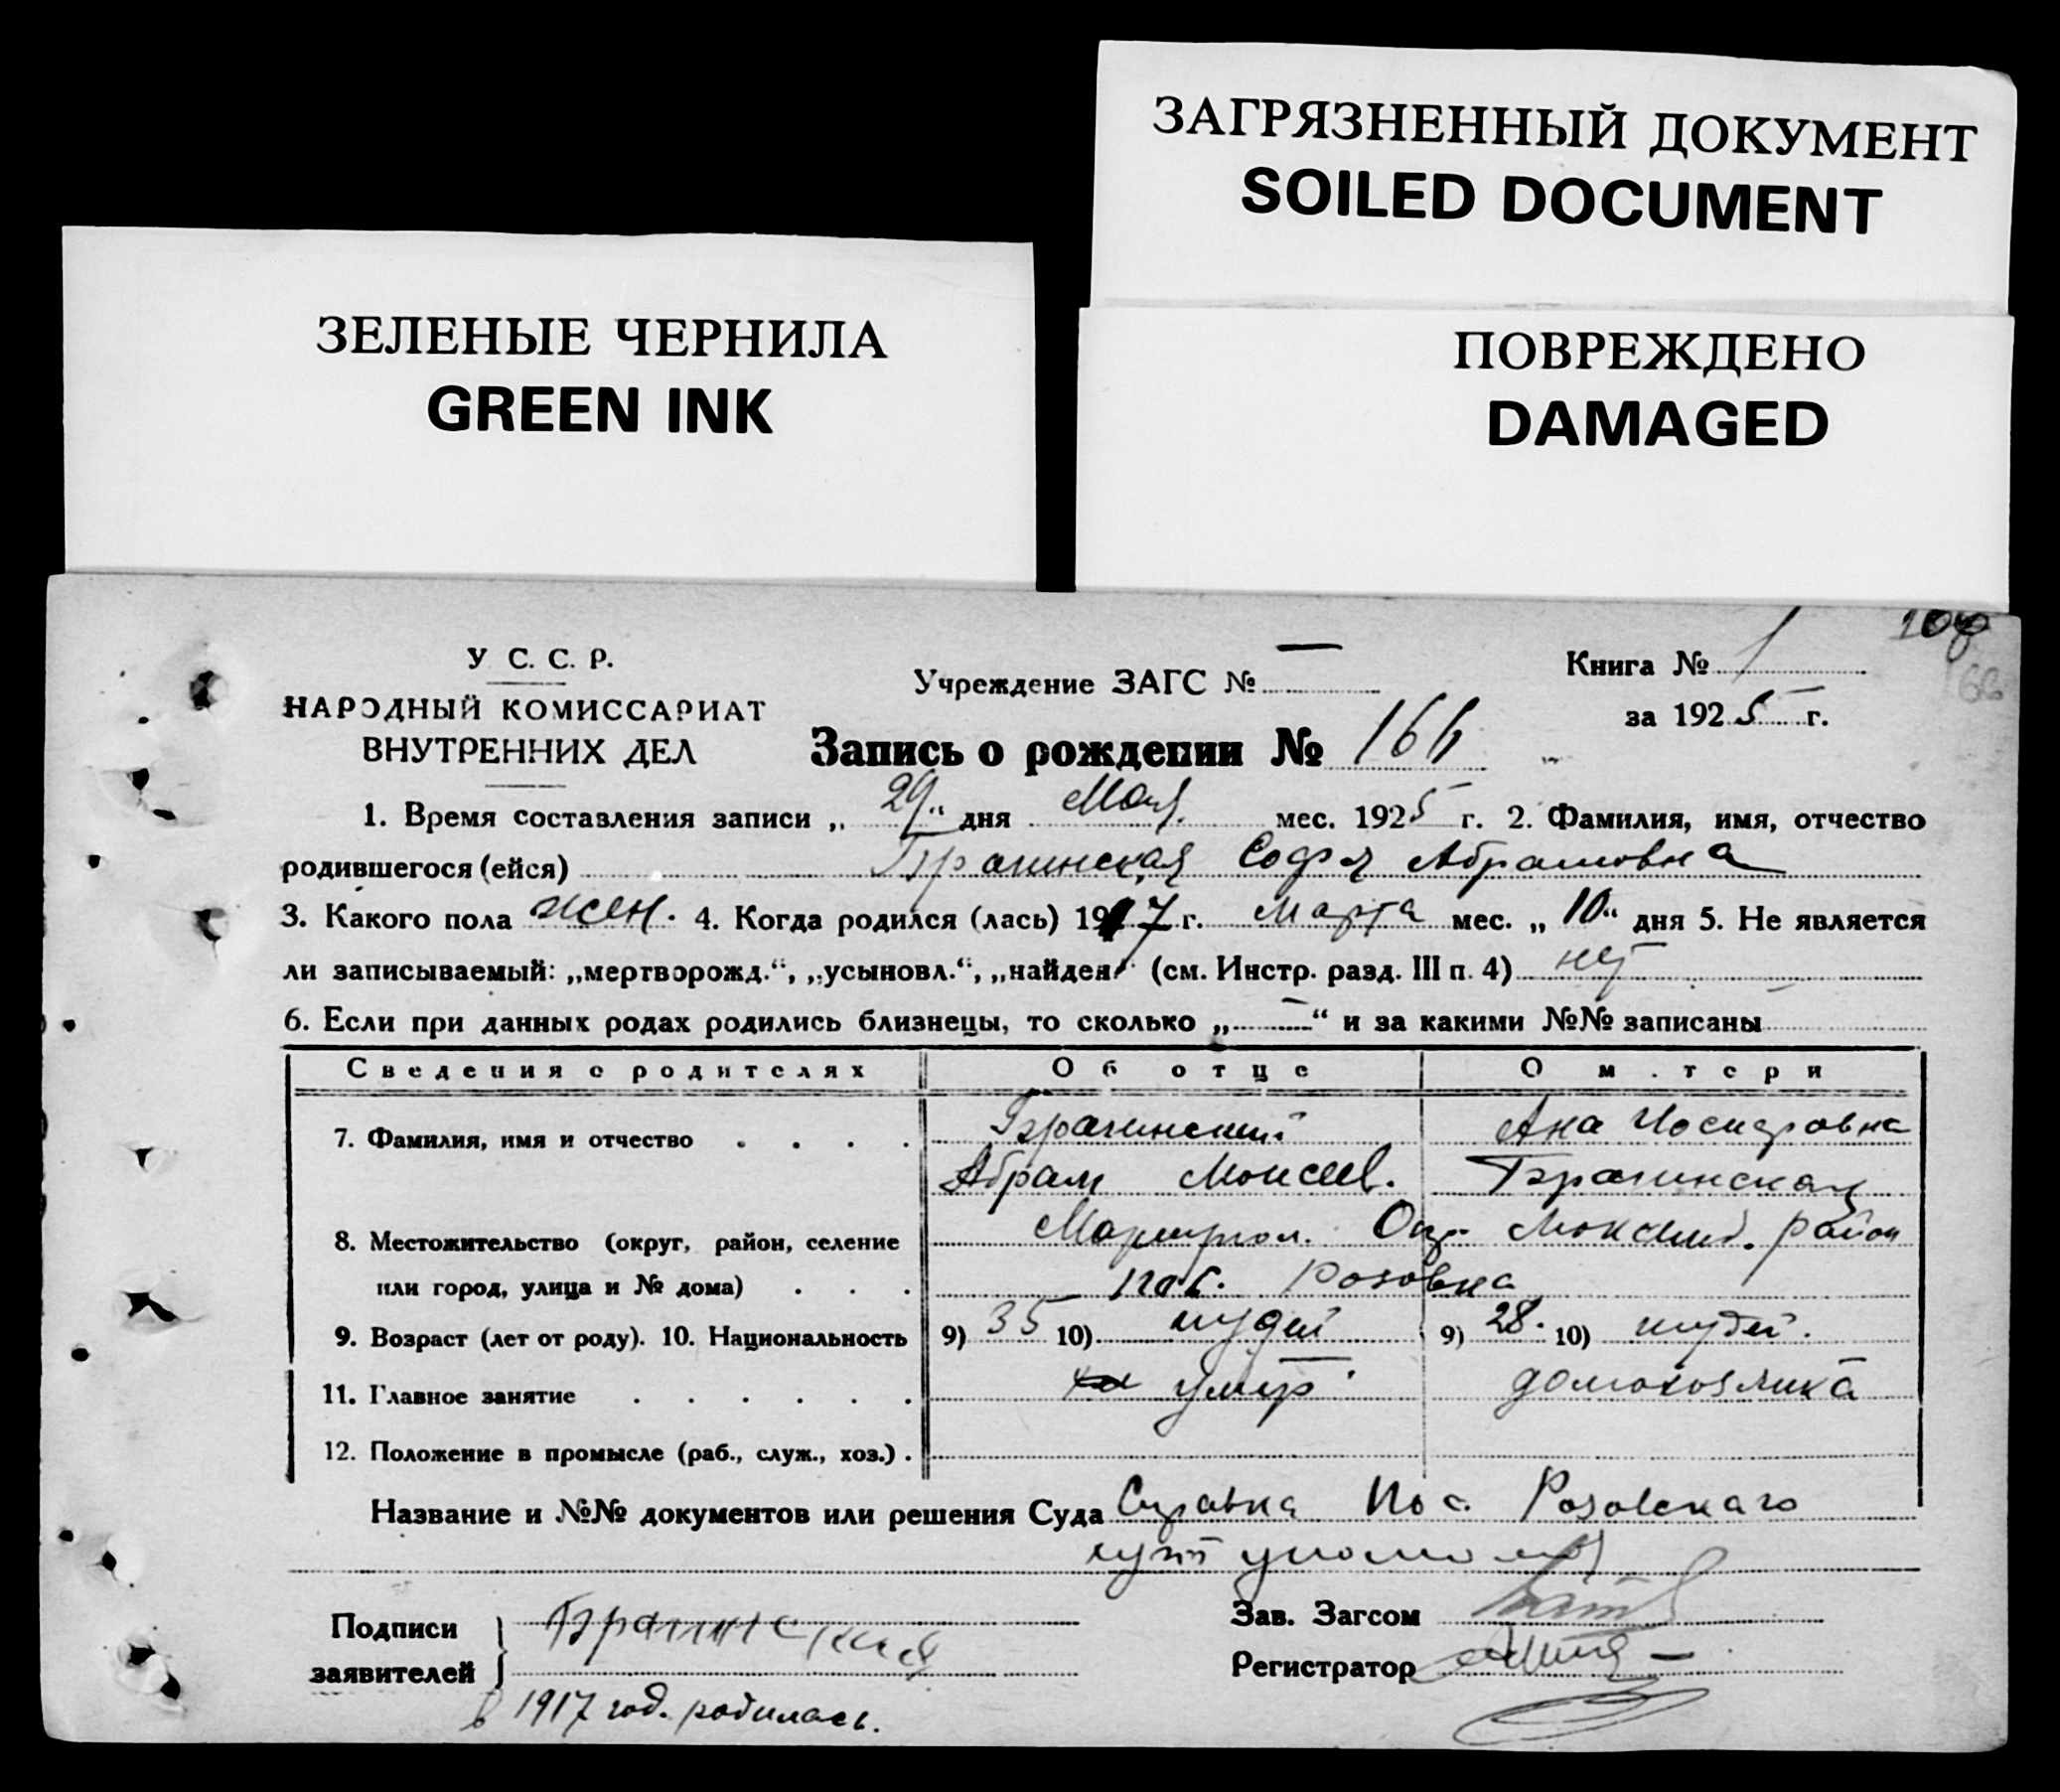 ЗАГРЯЗНЕННЫЙ ДОКУМЕНТ
SOILED DOCUMENT
ЗЕЛЕНЫЕ ЧЕРНИЛА
GREEN INK
ПОВРЕЖДЕНО
DAMAGED
У С. С. Р.
НАРОДНЫЙ КОМИССАРИАТ
ВНУТРЕННИХ ДЕЛ
Учреждение ЗАГС № —
Книга № 1
за 1925 г.
Запись о рождении № 166
1. Время составления записи „29“ дня Мая мес. 1925 г. 2. Фамилия, имя, отчество
родившегося (ейся) Брагинская Софья Абрамовна
3. Какого пола жен. 4. Когда родился (лась) 1917 г. марта мес. „10“ дня 5. Не является
ли записываемый: „мертворожд.“, „усыновл.“, „найден“ (см. Инстр. разд. III п. 4) нет
6. Если при данных родах родились близнецы, то сколько „—“ и за какими №№ записаны
Сведения о родителях Об отце О матери
7. Фамилия, имя и отчество Брагинский Ана Иосифовна
Абрам Моисеев. Брагинская
8. Местожительство (округ, район, селение Мариупол. Окр. район
или город, улица и № дома) пос. Розовка
9. Возраст (лет от роду). 10. Национальность 9) 35 10) иудей 9) 28. 10) иудей.
11. Главное занятие умер. домохозяйка
12. Положение в промысле (раб., служ., хоз.)
Название и №№ документов или решения Суда Справка Пос. Розовского
Подписи
заявителей
Брагинская
Зав. Загсом
Регистратор
в 1917 год. родилась.